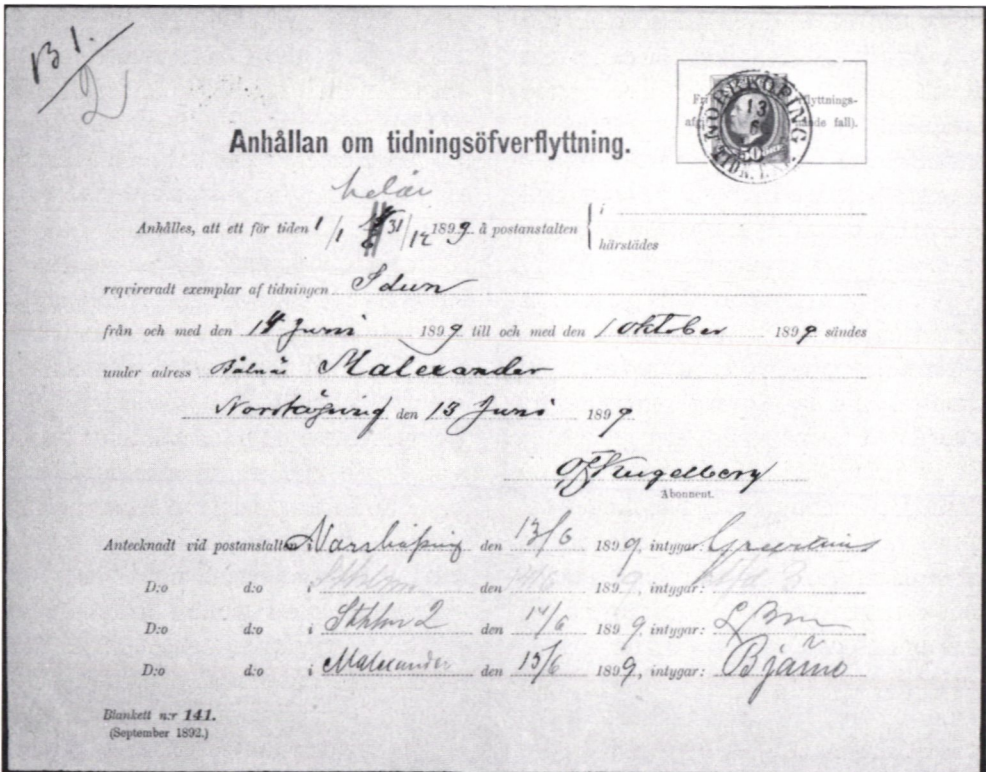 B 1.
2
NORRKÖPING
13
6
50 ÖRE
Anhållan om tidningsöfverflyttning.
helår
Anhålles, att ett för tiden 1/1 31/12 1899 å postanstalten { i
härstädes
reqvireradt exemplar af tidningen Idun
från och med den 14 Juni 1899 till och med den 1 oktober 1899 sändes
under adress Malexander
Norrköping den 13 Juni 1899
Kugelberg
Abonnent.
Antecknadt vid postanstalten i Norrköping den 13/6 1899, intygar:
D:o d:o i den 14/6 1899, intygar:
D:o d:o i Sthlm 2 den 14/6 1899, intygar:
D:o d:o i Malexander den 15/6 1899, intygar: Bjärno
Blankett n:r 141.
(September 1892.)